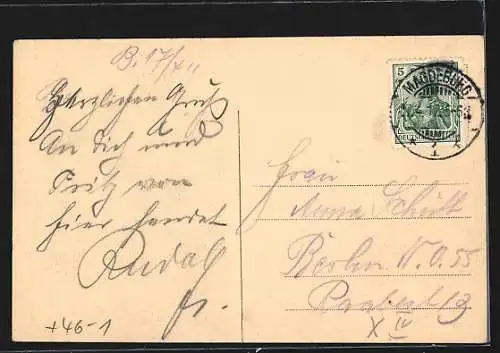 B. 17/X 11
Herzlichen Gruß
An Dich und
Fritz von
hier sendet
Rudolf
Frau
Anna Schütt
Berlin N.O. 55
IV
5
MAGDEBURG
* 1 *
+46-1